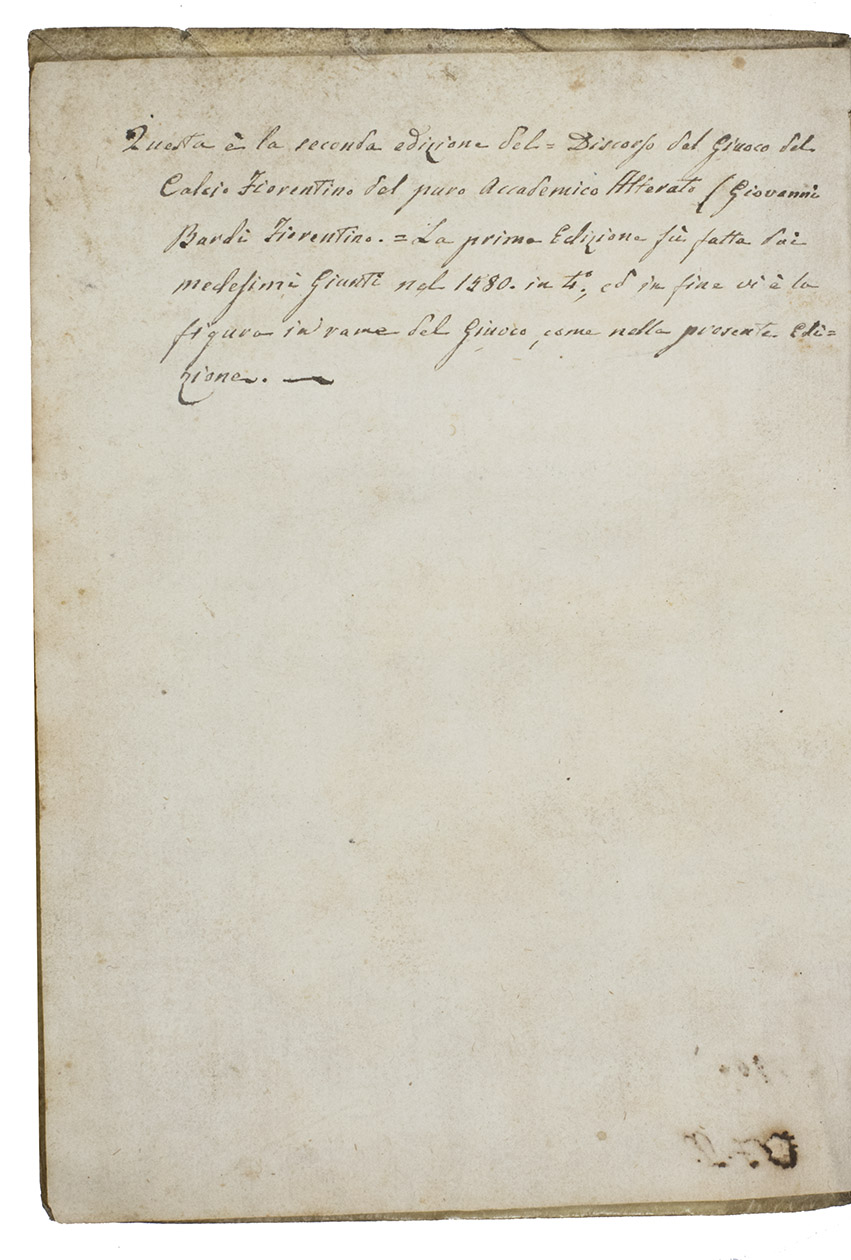 Questa è la seconda edizione del = Discorso del Giuoco del
Calcio Fiorentino del puro Accademico Alterato (Giovanni
Bardi Fiorentino. = La prima Edizione fù fatta dai
medesimi Giunti nel 1580. in 4°, ed in fine vi è la
figura in rame del Giuoco, come nella presente Edi=
zione.